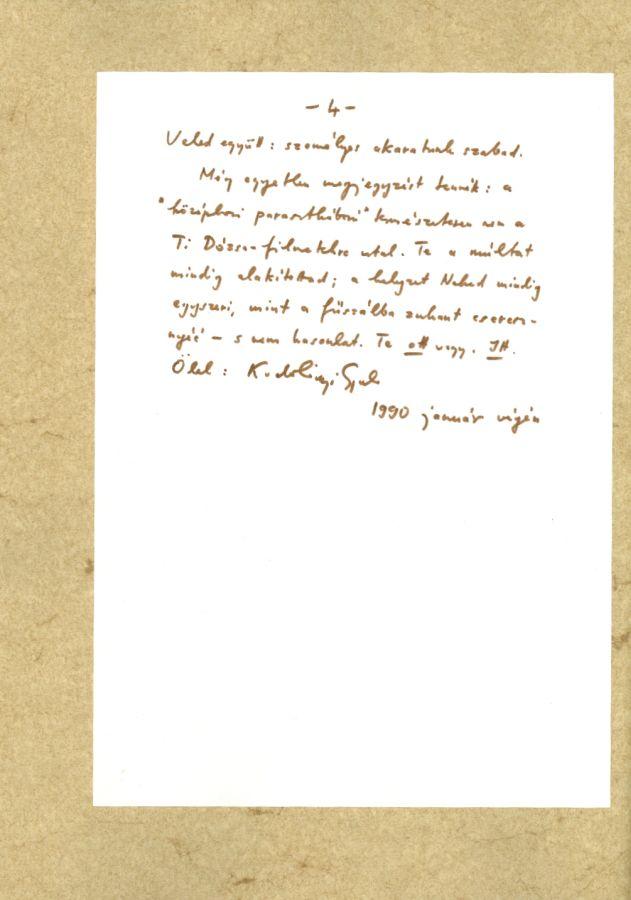 - 4 -
Veled együtt: személyes akaratunk szabad.
Még egyetlen megjegyzést tennék: a
"középkori parasztháború" természetesen nem a
Ti Dózsa-filmetekre utal. Te a múltat
mindig alakítottad; a helyzet Neked mindig
egyszeri, mint a fűszálba zuhant cseresz-
nyéé - s nem hasonlat. Te ott vagy. Itt.
Ölel:
1990 január végén